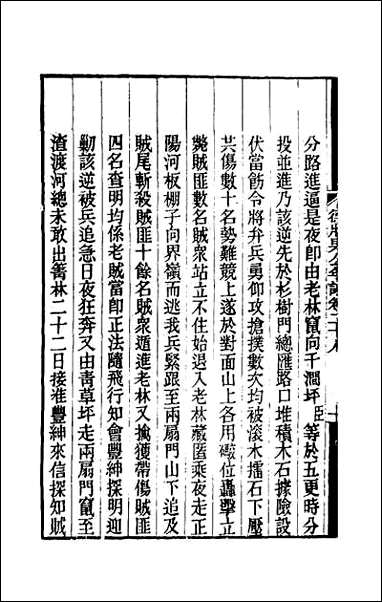 分路進逼是夜卽由老林竄向千澗坪臣等於五更時分
投並進乃該逆先於杉樹門總匯路口堆積木石據險設
伏當飭令將弁兵勇仰攻搶撲數次均被滾木擂石下壓
共傷數十名勢難競上遂於對面山上各用礮位轟擊立
斃賊匪數名賊衆站立不住始退入老林藏匿乘夜走正
陽河板棚子向界嶺而逃我兵緊跟至兩扇門山下追及
賊尾斬殺賊匪十餘名賊衆遁進老林又擒獲帶傷賊匪
四名查明均係老賊當卽正法隨飛行知會豐紳探明迎
勦該逆被兵追急日夜狂奔又由靑草坪走兩扇門竄至
渣渡河總未敢出箐林二十二日接准豐紳來信探知賊